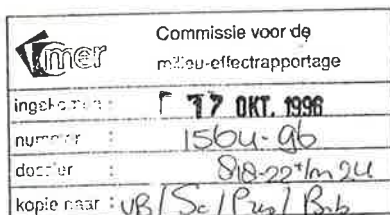 mer
Commissie voor de
milieu-effectrapportage
ingekomen : 17 OKT. 1996
nummer : 1564-96
dossier : 818-22 t/m 24
kopie naar : VB/Sc/